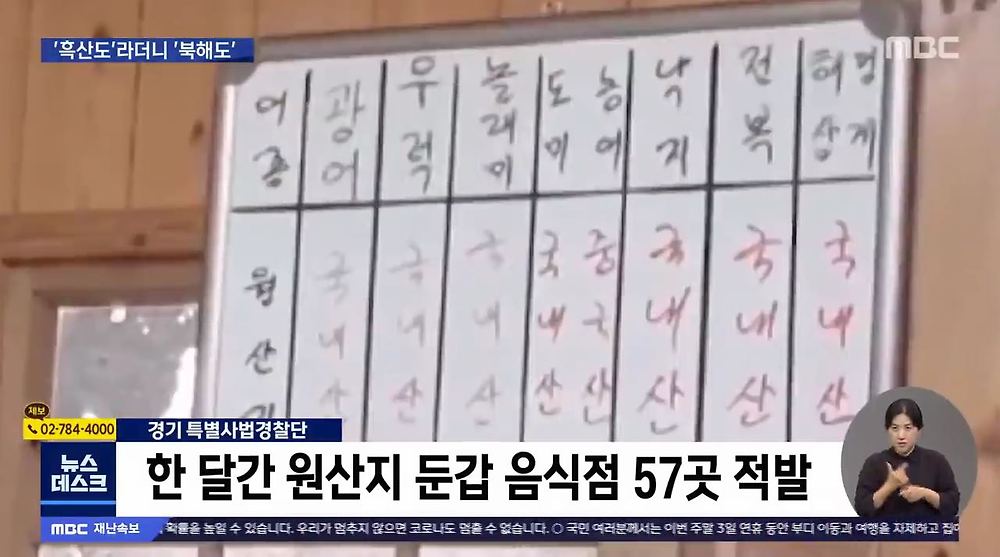 '흑산도'라더니 '북해도'
MBC
어종 광어 우럭 놀래미 도미 농어 낙지 전복 해삼 멍게
원산지 국내산 국내산 국내산 국내산 중국산 국내산 국내산 국내산
제보
02-784-4000
경기 특별사법경찰단
뉴스
데스크
한 달간 원산지 둔갑 음식점 57곳 적발
MBC 재난속보 확률을 높일 수 있습니다. 우리가 멈추지 않으면 코로나도 멈출 수 없습니다. ○ 국민 여러분께서는 이번 주말 3일 연휴 동안 부디 이동과 여행을 자제하고 집에